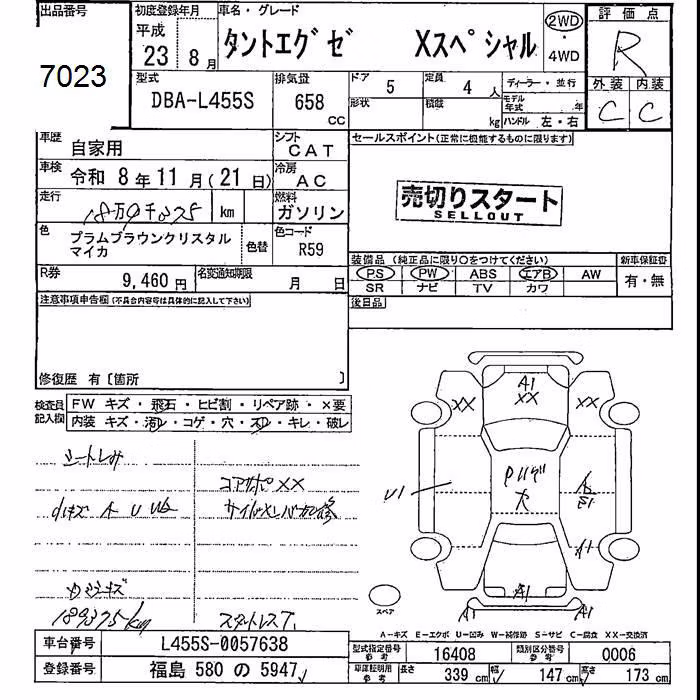 出品番号
7023
初度登録年月
平成
23年 8月
車名・グレード
タントエグゼ Xスペシャル
2WD
・
4WD
評価点
R
外装 内装
C C
型式
DBA-L455S
排気量
658
CC
ドア
5
定員
4人
形状
積載
kg
ディーラー・並行
モデル年式 年
ハンドル 左・右
車歴
自家用
シフト
CAT
セールスポイント(正常に機能するものに限ります)
車検
令和 8年 11月(21日)
冷房
AC
売切りスタート
SELLOUT
走行
18万9千375
km
燃料
ガソリン
色
プラムブラウンクリスタル
マイカ
色替
色コード
R59
R券
9,460円
名変通知期限
月 日
装備品 (純正品に限り○をつけてください)
PS PW ABS エアB AW
SR ナビ TV カワ
新車保証書
有・無
後日品
注意事項申告欄(不具合内容等は具体的に記入して下さい)
修復歴 有〔箇所 〕
検査員
記入欄
FW キズ・飛石・ヒビ割・リペア跡・×要
内装 キズ・汚レ・コゲ・穴・スレ・キレ・破レ
シートしみ
コアサポXX
小キズ A U
189375km
スタットレスT.
A1
XX
XX
XX
U1
A1
A1
A1
A1
スペア
A-キズ E-エクボ U-凹み W-補修跡 S-サビ C-腐食 XX-交換済
車台番号
L455S-0057638
登録番号
福島 580 の 5947
型式指定番号
参考
16408
類別区分番号
参考
0006
車庫証明用
参考
長さ
339cm
幅
147cm
高さ
173cm